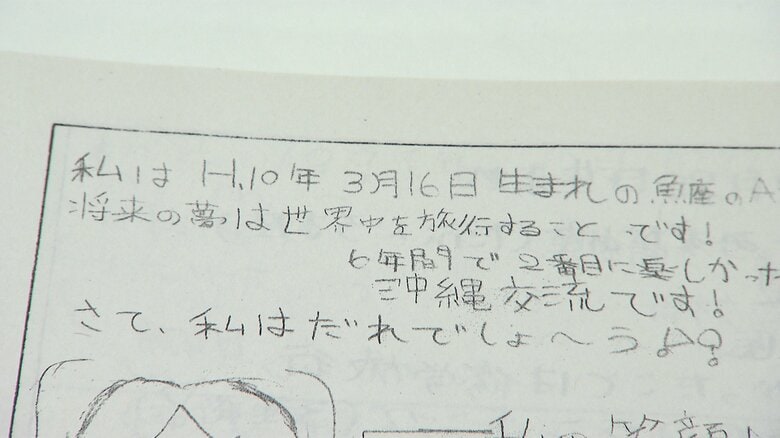 私は H.10年 3月16日 生まれの魚座のA
将来の夢は世界中を旅行すること です!
6年間で2番目に楽しかった
沖縄交流です!
さて、私はだれでしょ〜う♪?
私の笑顔